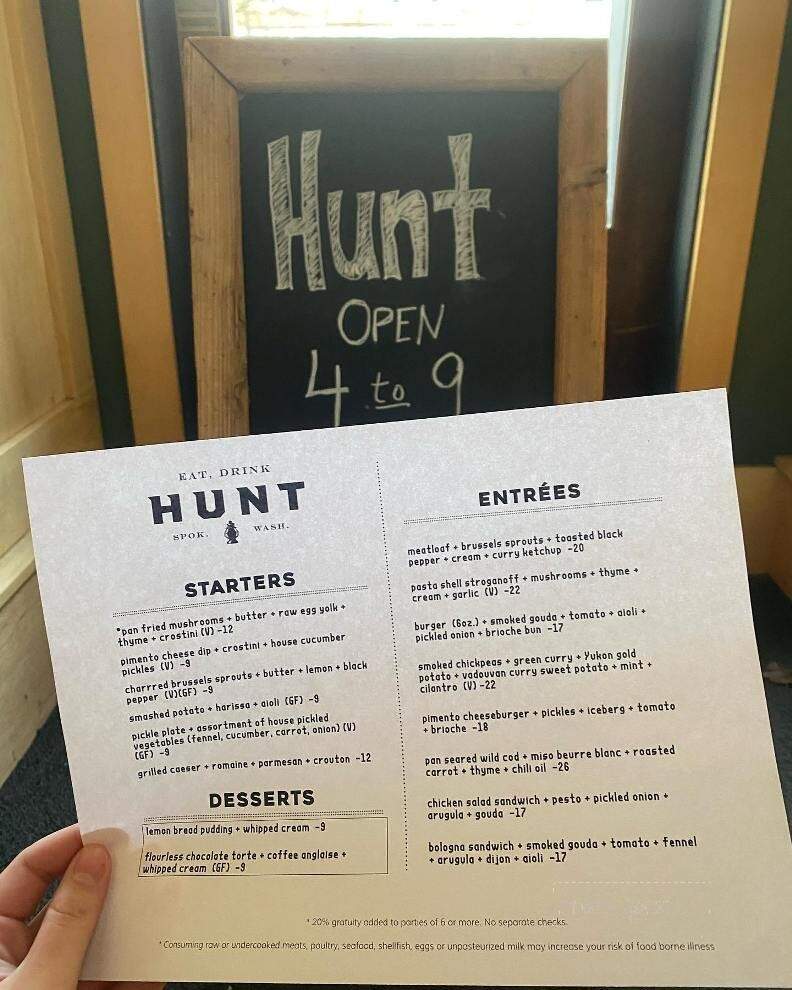 Hunt
OPEN
4 to 9
EAT, DRINK
HUNT
SPOK. WASH.
STARTERS
*pan fried mushrooms + butter + raw egg yolk +
thyme + crostini (V) -12
pimento cheese dip + crostini + house cucumber
pickles (V) -9
charrred brussels sprouts + butter + lemon + black
pepper (V)(GF) -9
smashed potato + harissa + aioli (GF) -9
pickle plate + assortment of house pickled
vegetables (fennel, cucumber, carrot, onion) (V)
(GF) -9
grilled caeser + romaine + parmesan + crouton -12
DESSERTS
lemon bread pudding + whipped cream -9
flourless chocolate torte + coffee anglaise +
whipped cream (GF) -9
ENTRÉES
meatloaf + brussels sprouts + toasted black
pepper + cream + curry ketchup -20
pasta shell stroganoff + mushrooms + thyme +
cream + garlic (V) -22
burger (6oz.) + smoked gouda + tomato + aioli +
pickled onion + brioche bun -17
smoked chickpeas + green curry + Yukon gold
potato + vadouvan curry sweet potato + mint +
cilantro (V) -22
pimento cheeseburger + pickles + iceberg + tomato
+ brioche -18
pan seared wild cod + miso beurre blanc + roasted
carrot + thyme + chili oil -26
chicken salad sandwich + pesto + pickled onion +
arugula + gouda -17
bologna sandwich + smoked gouda + tomato + fennel
+ arugula + dijon + aioli -17
* 20% gratuity added to parties of 6 or more. No separate checks.
* Consuming raw or undercooked meats, poultry, seafood, shellfish, eggs or unpasteurized milk may increase your risk of food borne illness